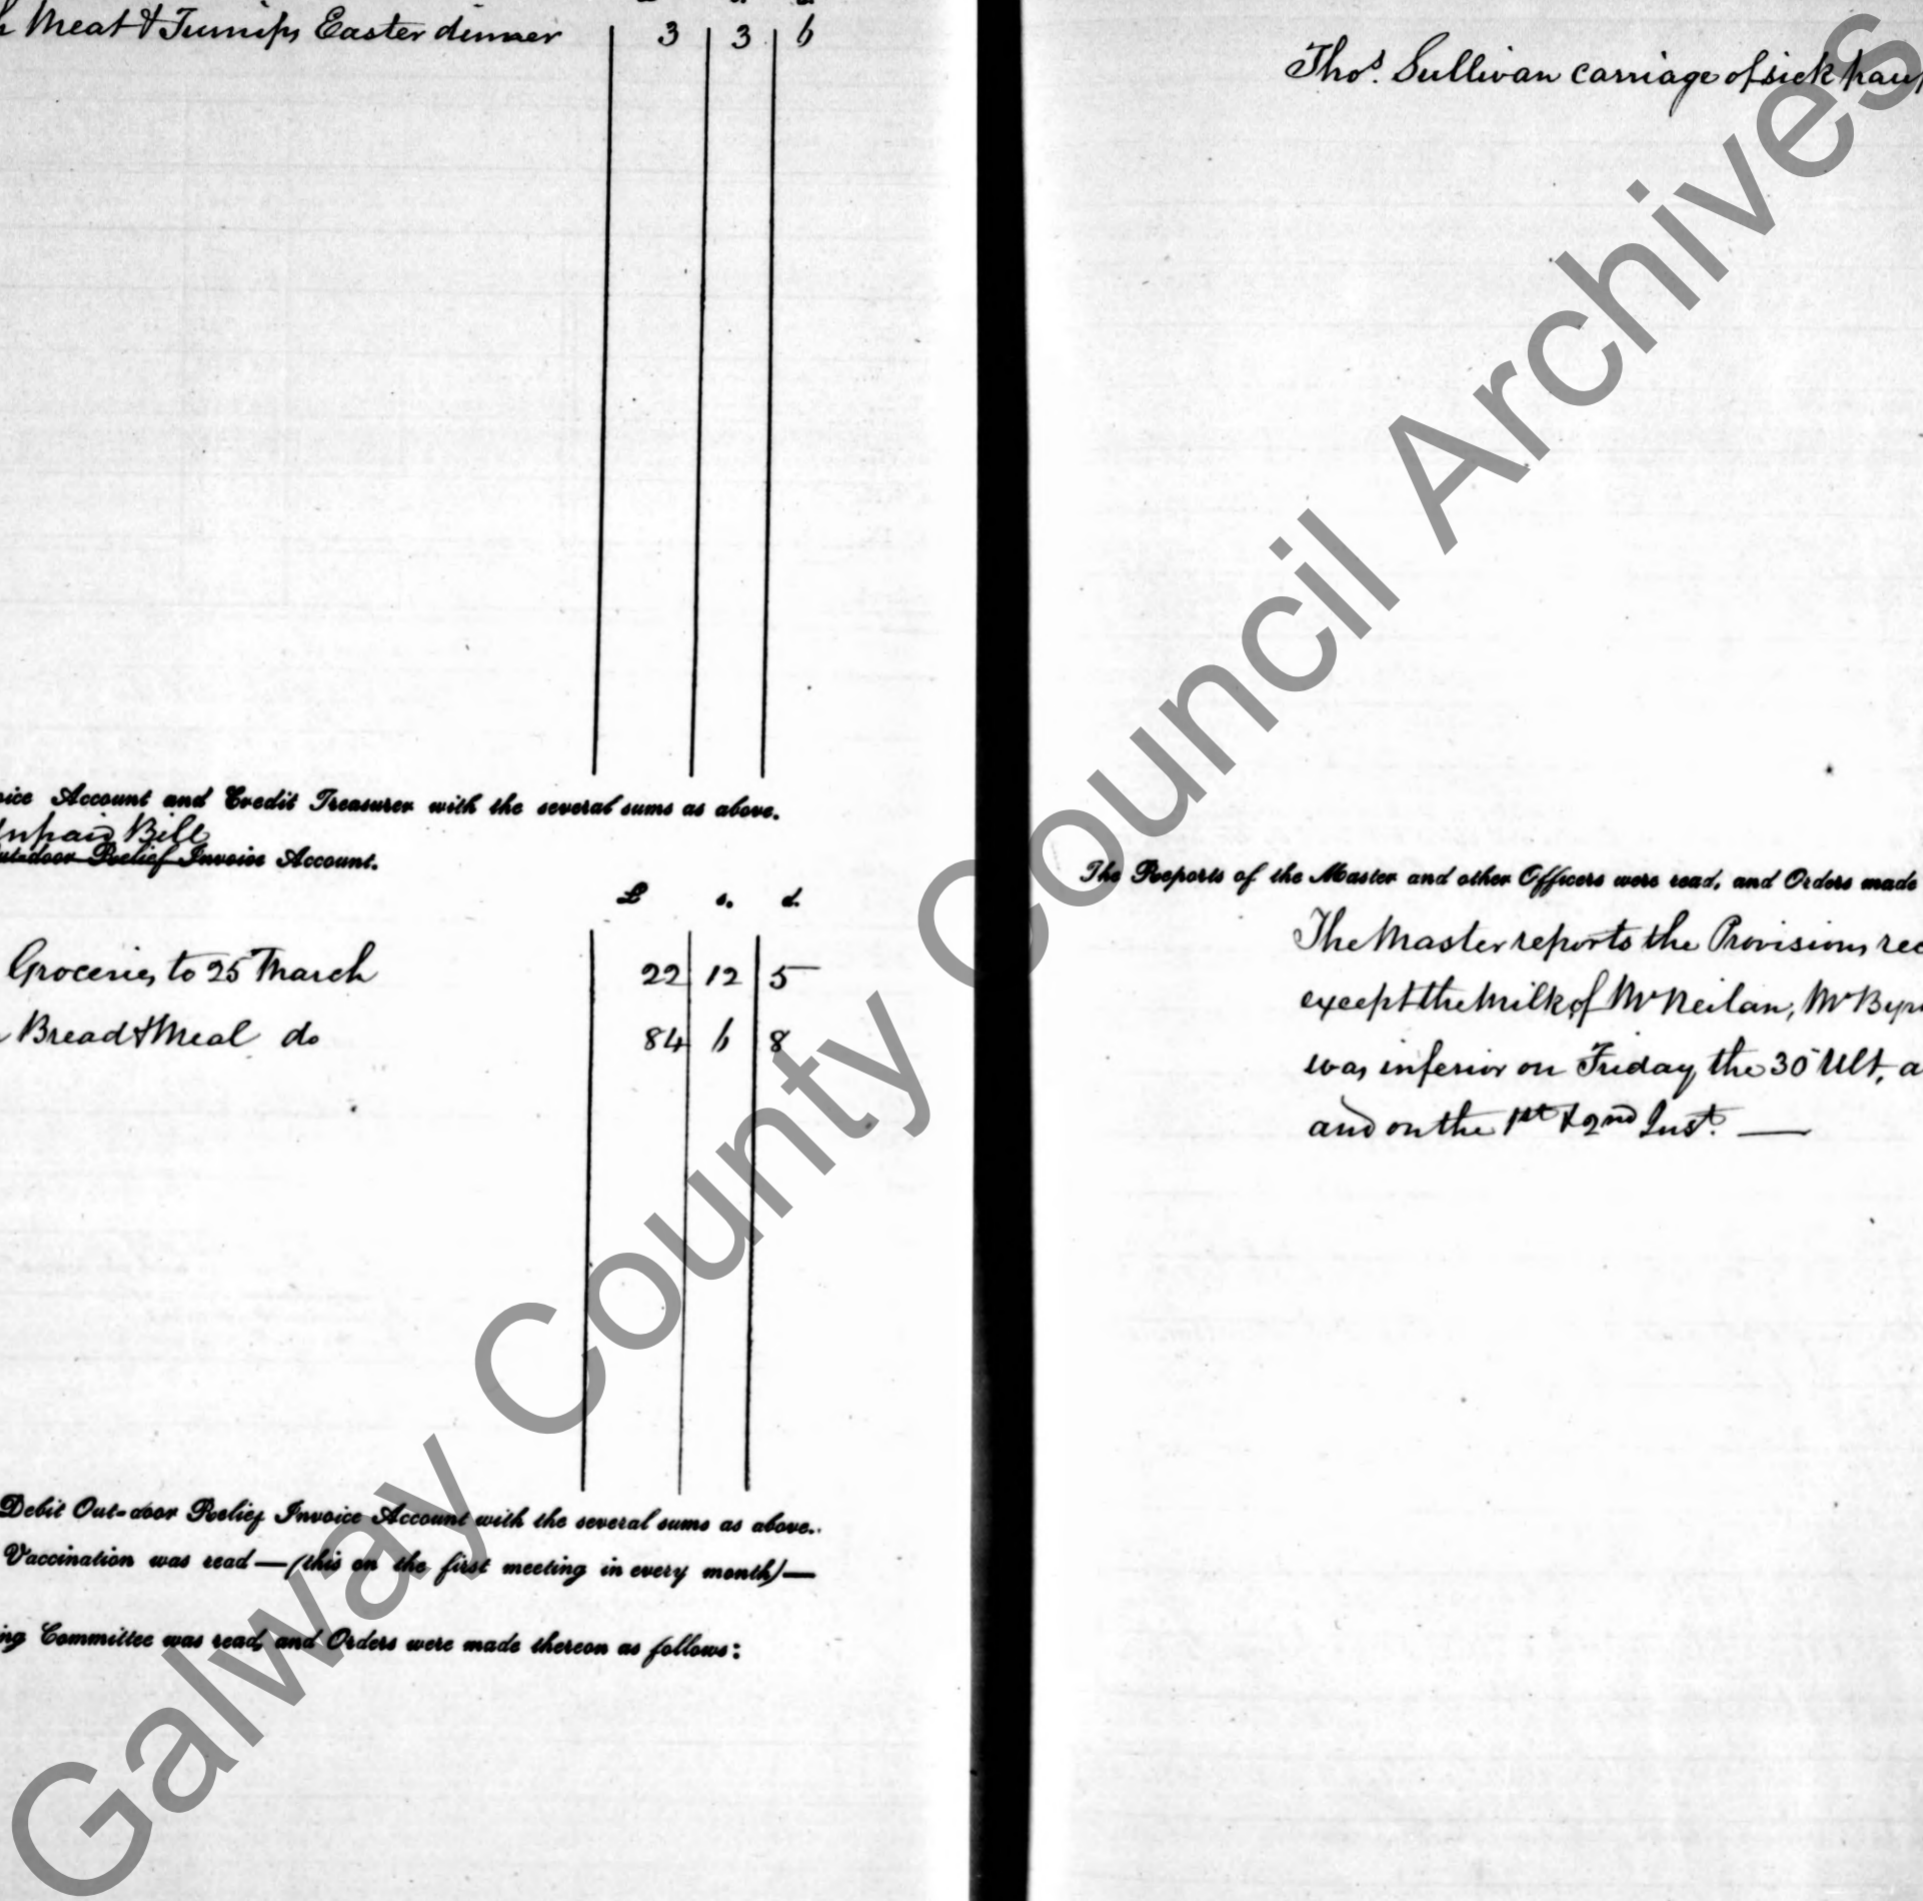 Meat & Turnips Easter dinner 3 3 6
Account and Credit Treasurer with the several sums as above.
Unpaid Bill
Out-door Relief Invoice Account.
£ s. d.
Groceries to 25 March 22 12 5
Bread & Meal do 84 6 8
Debit Out-door Relief Invoice Account with the several sums as above.
Vaccination was read—(this on the first meeting in every month)—
Committee was read, and Orders were made thereon as follows:
Thos. Sullivan carriage of sick
The Reports of the Master and other Officers were read, and Orders made
The Master reports the Provisions
except the Milk of Mr Neilan, Mr
was inferior on Friday the 30 Ult, a
and on the 1st & 2nd Inst. —
Galway County Council Archives